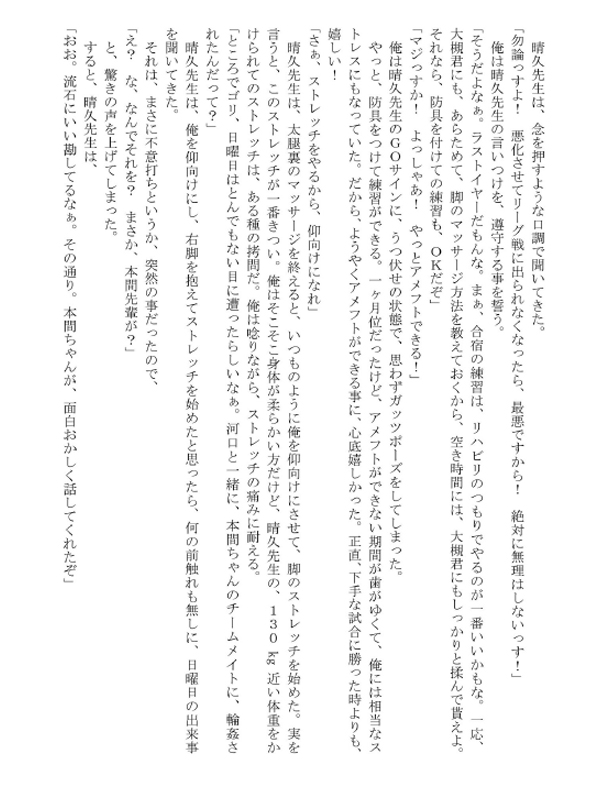 晴久先生は、念を押すような口調で聞いてきた。
「勿論っすよ！　悪化させてリーグ戦に出られなくなったら、最悪ですから！　絶対に無理はしないっす！」
俺は晴久先生の言いつけを、遵守する事を誓う。
「そうだよなぁ。ラストイヤーだもんな。まぁ、合宿の練習は、リハビリのつもりでやるのが一番いいかもな。一応、
大槻君にも、あらためて、脚のマッサージ方法を教えておくから、空き時間には、大槻君にもしっかりと揉んで貰えよ。
それなら、防具を付けての練習も、ＯＫだぞ」
「マジっすか！　よっしゃあ！　やっとアメフトできる！」
俺は晴久先生のＧＯサインに、うつ伏せの状態で、思わずガッツポーズをしてしまった。
やっと、防具をつけて練習ができる。一ヶ月位だったけど、アメフトができない期間が歯がゆくて、俺には相当なス
トレスにもなっていた。だから、ようやくアメフトができる事に、心底嬉しかった。正直、下手な試合に勝った時よりも、
嬉しい！
「さぁ、ストレッチをやるから、仰向けになれ」
晴久先生は、太腿裏のマッサージを終えると、いつものように俺を仰向けにさせて、脚のストレッチを始めた。実を
言うと、このストレッチが一番きつい。俺はそこそこ身体が柔らかい方だけど、晴久先生の、１３０㎏近い体重をか
けられてのストレッチは、ある種の拷問だ。俺は唸りながら、ストレッチの痛みに耐える。
「ところでゴリ、日曜日はとんでもない目に遭ったらしいなぁ。河口と一緒に、本間ちゃんのチームメイトに、輪姦さ
れたんだって？」
晴久先生は、俺を仰向けにし、右脚を抱えてストレッチを始めたと思ったら、何の前触れも無しに、日曜日の出来事
を聞いてきた。
それは、まさに不意打ちというか、突然の事だったので、
「え？　な、なんでそれを？　まさか、本間先輩が？」
と、驚きの声を上げてしまった。
すると、晴久先生は、
「おお。流石にいい勘してるなぁ。その通り。本間ちゃんが、面白おかしく話してくれたぞ」